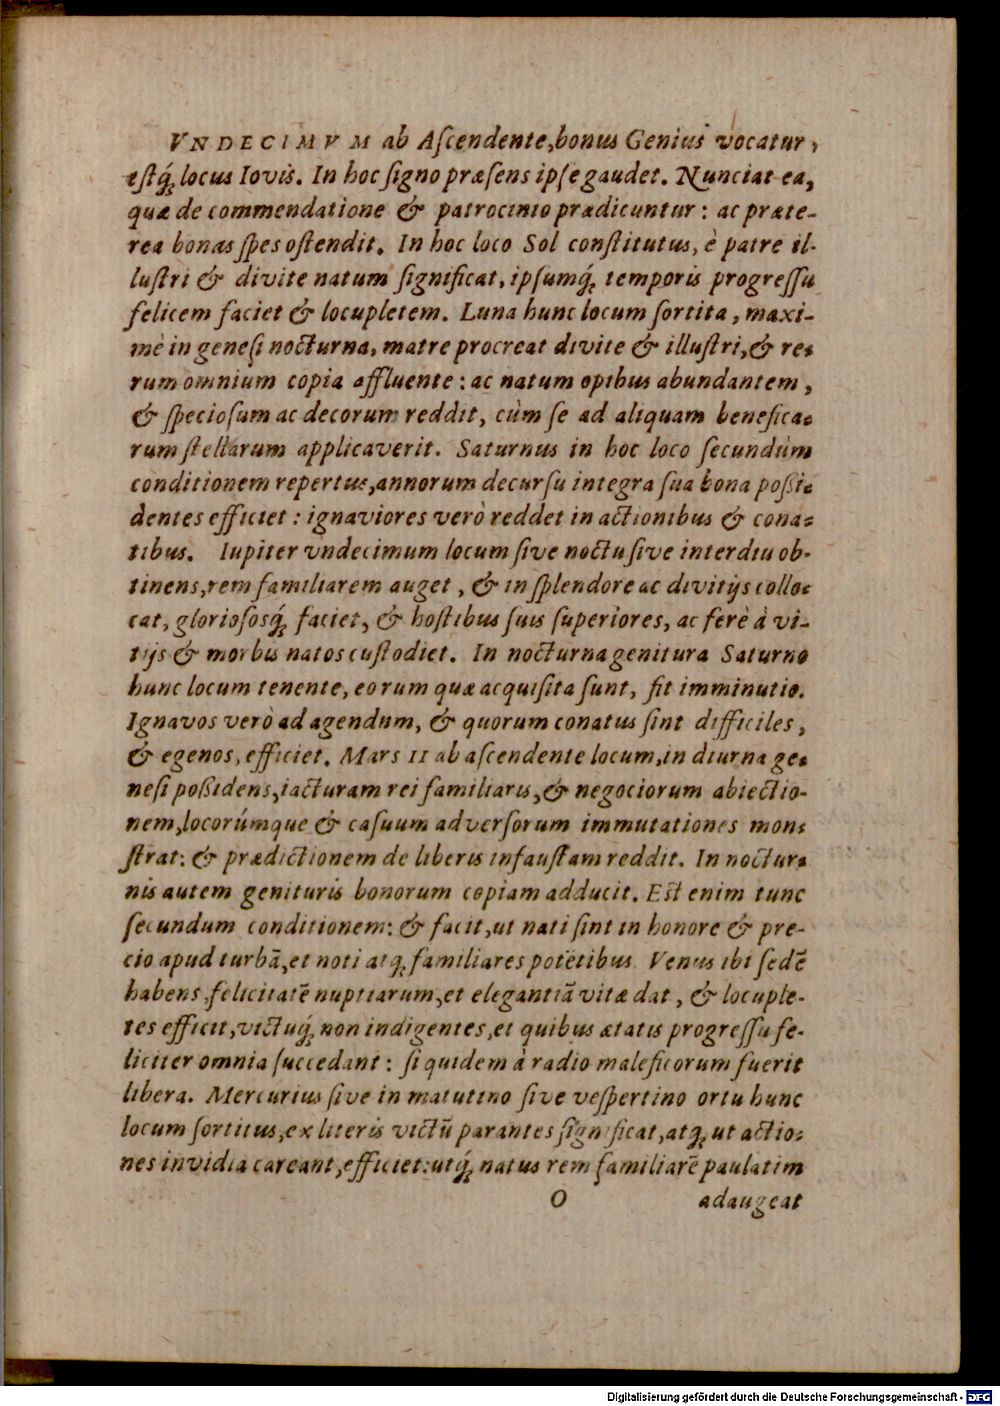 VNDECIMVM ab Aſcendente, bonus Genius vocatur,
eſtq́; locus Iovis. In hoc ſigno præſens ipſe gaudet. Nunciat ea,
quæ de commendatione & patrocinio prædicuntur: ac præte-
rea bonas ſpes oſtendit. In hoc loco Sol conſtitutus, è patre il-
luſtri & divite natum ſignificat, ipſumq́; temporis progreſſu
felicem faciet & locupletem. Luna hunc locum ſortita, maxi-
mè in geneſi nocturna, matre procreat divite & illuſtri, & re-
rum omnium copia affluente: ac natum opibus abundantem,
& ſpecioſum ac decorum reddit, cùm ſe ad aliquam benefica-
rum ſtellarum applicaverit. Saturnus in hoc loco ſecundùm
conditionem repertus, annorum decurſu integra ſua bona poßi-
dentes efficiet: ignaviores verò reddet in actionibus & cona-
tibus. Iupiter vndecimum locum ſive noctu ſive interdiu ob-
tinens, rem familiarem auget, & in ſplendore ac divitijs collo-
cat, glorioſosq́; faciet, & hoſtibus ſuis ſuperiores, ac ferè à vi-
tijs & morbis natos cuſtodiet. In nocturna genitura Saturno
hunc locum tenente, eorum quæ acquiſita ſunt, fit imminutio.
Ignavos verò ad agendum, & quorum conatus ſint difficiles,
& egenos, efficiet. Mars 11 ab aſcendente locum, in diurna ge-
neſi poßidens, iacturam rei familiaris, & negociorum abiectio-
nem, locorúmque & caſuum adverſorum immutationes mon-
ſtrat: & prædictionem de liberis infauſtam reddit. In noctur-
nis autem genituris bonorum copiam adducit. Eſt enim tunc
ſecundum conditionem: & facit, ut nati ſint in honore & pre-
cio apud turbã, et noti atq; familiares potẽtibus. Venus ibi ſedẽ
habens, felicitatẽ nuptiarum, et elegantiã vitæ dat, & locuple-
tes efficit, victuq́; non indigentes, et quibus ætatis progreſſu fe-
liciter omnia ſuccedant: ſi quidem à radio maleficorum fuerit
libera. Mercurius ſive in matutino ſive veſpertino ortu hunc
locum ſortitus, ex literis victũ parantes ſignificat, atq; ut actio-
nes invidia careant, efficiet: utq́; natus rem familiarẽ paulatim
O adaugeat
Digitalisierung gefördert durch die Deutsche Forschungsgemeinschaft - DFG